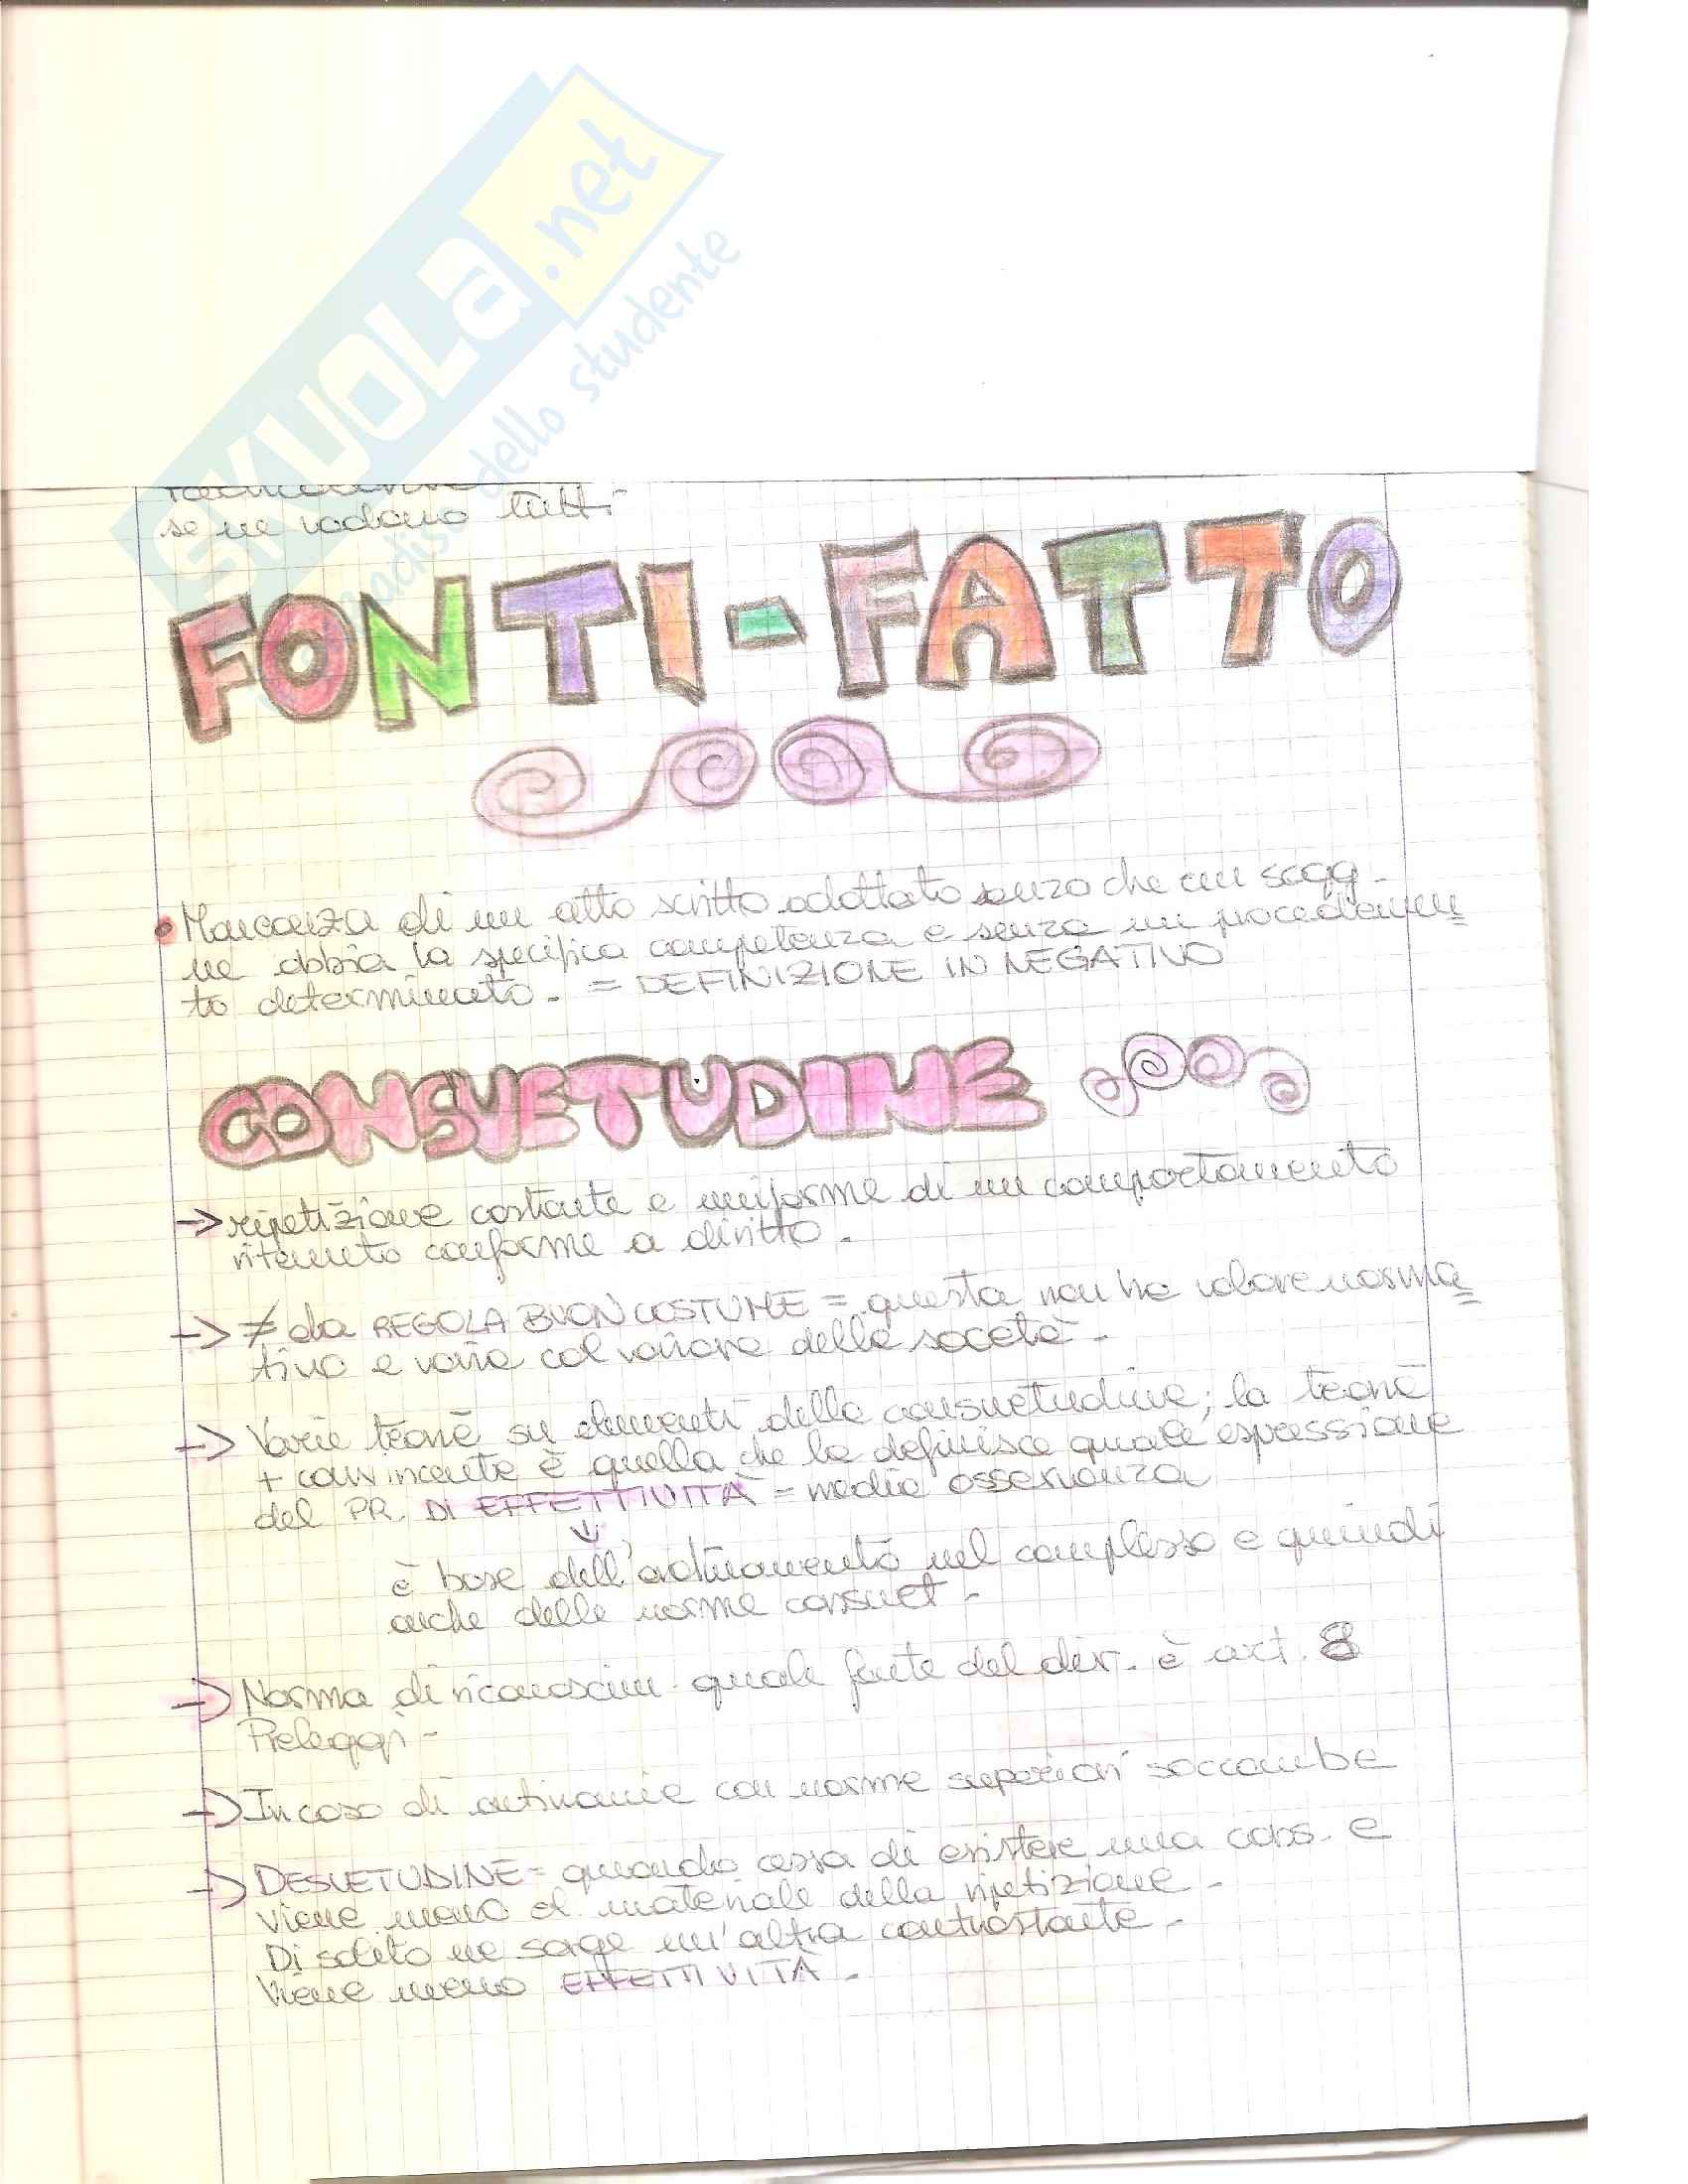 SKUOLA.net
paradiso dello studente
se ne vadano tutti
FONTI-FATTO
• Mancanza di un atto scritto adottato senza che un sogg.
ne abbia la specifica competenza e senza un procedimen
to determinato. = DEFINIZIONE IN NEGATIVO
CONSUETUDINE
-> ripetizione costante e uniforme di un comportamento
ritenuto conforme a diritto.
-> ≠ da REGOLA BUON COSTUME = questa non ha valore norma
tivo e varia col variare della società.
-> Varie teorie su elementi della consuetudine; la teoria
+ convincente è quella che la definisce quale espressione
del PR. DI EFFETTIVITÀ = media osservanza
↓
è base dell'ordinamento nel complesso e quindi
anche delle norme consuet.
-> Norma di riconoscim. quale fonte del dir. è art. 8
Preleggi.
-> In caso di antinomie con norme superiori soccombe
-> DESUETUDINE = quando cessa di esistere una cons. e
viene meno el. materiale della ripetizione.
Di solito ne sorge un'altra contrastante.
Viene meno EFFETTIVITÀ.